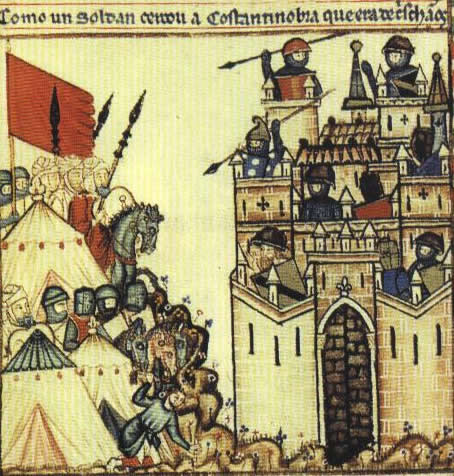 Como un Soldan cercou a Costantinobia que era de crischãos